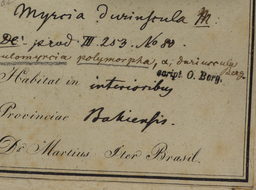 Myrcia durinscula M:
DC prod III. 253. No 80.
ulomyrcia polymorpha, α, duriuscula Berg.
script. O. Berg.
Habitat in interioribus
Provinciae Bahiensis.
Dr Martius Iter Brasil.